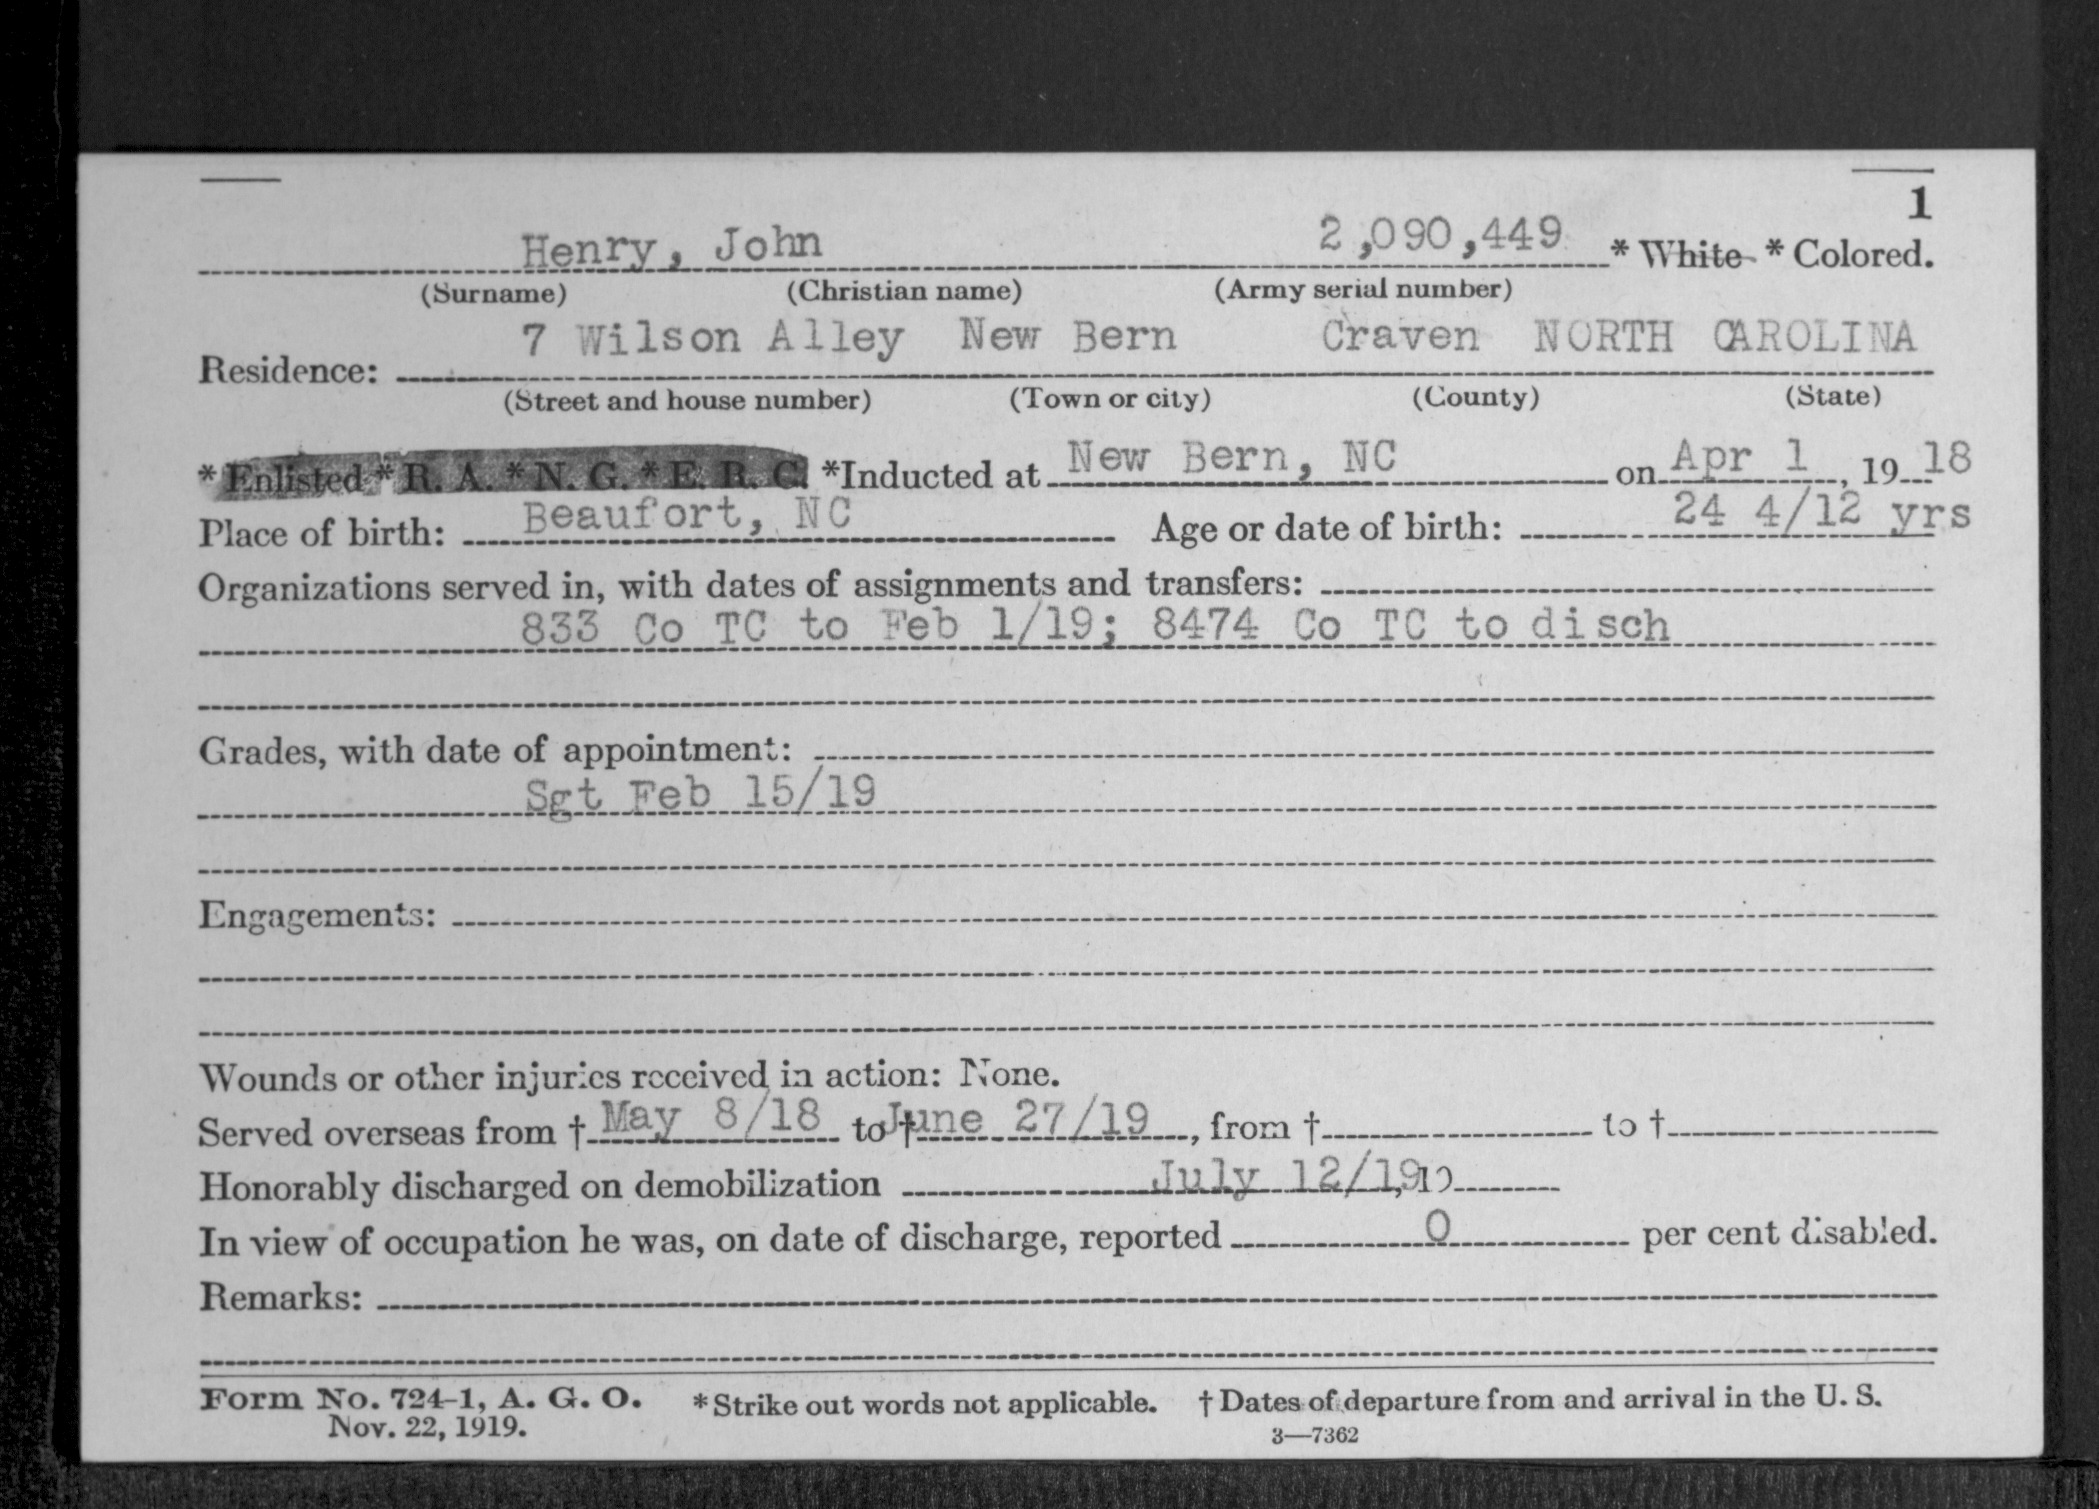 1
Henry, John 2,090,449 * White * Colored.
(Surname) (Christian name) (Army serial number)
7 Wilson Alley New Bern Craven NORTH CAROLINA
Residence:
(Street and house number) (Town or city) (County) (State)
* Enlisted * R. A. * N. G. * E. R. C. *Inducted at New Bern, NC on Apr 1, 1918
Place of birth: Beaufort, NC Age or date of birth: 24 4/12 yrs
Organizations served in, with dates of assignments and transfers:
833 Co TC to Feb 1/19; 8474 Co TC to disch
Grades, with date of appointment:
Sgt Feb 15/19
Engagements:
Wounds or other injuries received in action: None.
Served overseas from † May 8/18 to † June 27/19, from † to †
Honorably discharged on demobilization July 12/19, 19
In view of occupation he was, on date of discharge, reported 0 per cent disabled.
Remarks:
Form No. 724-1, A. G. O. * Strike out words not applicable. † Dates of departure from and arrival in the U. S.
Nov. 22, 1919. 3—7362